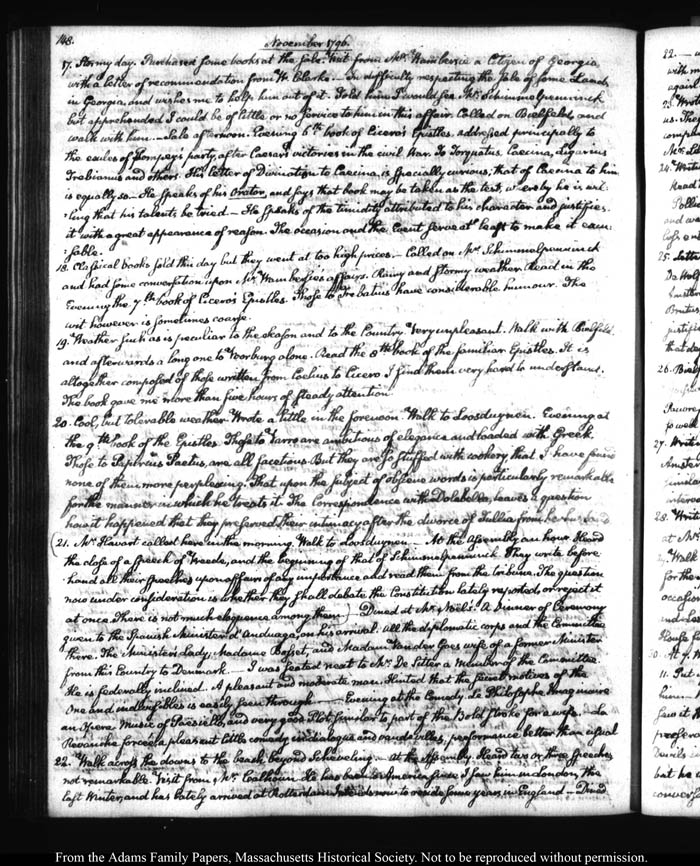 148.
November 1796.
17. Stormy day. Purchased some books at the sale. Visit from Mr. Wambersie a Citizen of Georgia
with a letter of recommendation from W. Clarke. In difficulty respecting the Sale of some Lands
in Georgia, and wishes me to help him out of it. Told him I would see Mr. Schimmelpenninck
but apprehended I could be of little or no service to him in this affair. Called on Bielfeld, and
walk with him. — Sale afternoon. Evening 6th. book of Cicero's Epistles. addressed principally to
the exiles of Pompey's party, after Caesar's victories in the civil War. To Torquatus Caecina, Ligarius
Trebianus and others. His letter of Divination to Caecina, is specially curious, that of Caecina to him
is equally so — He speaks of his Orator, and says that book may be taken as the test, whereby he is wil-
:ling that his talents be tried. — He speaks of the timidity attributed to his character and justifies
it with a great appearance of reason. The occasion and the Event serve at least to make it excu-
:sable.
18. Classical books sold this day but they went at too high prices. — Called on Mr. Schimmelpenninck
and had some conversation upon Mr. Wambersies affairs. Rainy and Stormy weather. Read in the
Evening the 7th. book of Cicero's Epistles. Those to Trebatius have considerable humour. The
wit however is sometimes coarse.
19. Weather such as is peculiar to the season and to the Country. Very unpleasant. Walk with Bielfeld
and afterwards a long one to Voorburg alone. Read the 8th. book of the familiar Epistles. It is
altogether composed of those written from Coelius to Cicero I find them very hard to understand.
The book gave me more than five hours of steady attention.
20. Cool, but tolerable weather. Wrote a little in the forenoon. Walk to Loosduynen. Evening at
the 9th. book of the Epistles. Those to Varro are ambitious of elegance and loaded with Greek.
Those to Papirius Paetus, are all facetious. But they are so stuffed with cookery that I have found
none of them more perplexing. That upon the subject of obscene words is particularly remarkable
for the manner in which he treats it. The Correspondence with Dolabella, leaves a question
how it happened that they preserved their intimacy after the divorce of Tullia from her husband
21. Mr. Havart called here in the morning. Walk to Loosduynen. — At the Assembly an hour. Heard
the close of a Speech of Vreede, and the beginning of that of Schimmelpenninck. They write before
hand all their speeches upon affairs of any importance and read them from the tribune. The question
now under consideration is whether they shall debate the Constitution lately reported, or reject it
at once. There is not much eloquence among them. — Dined at Mr. Noël's. A Dinner of Ceremony
given to the Spanish Minister d'Anduaga, on his arrival. All the diplomatic corps and the Committee
there. The Ministers lady, Madame Bosset, and Madam Van der Goes wife of a former Minister
from this Country to Denmark — I was seated next to Mr. De Sitter a Member of the Committee.
He is federally inclined. A pleasant and moderate man. Hinted that the secret motives of the
One and indivisibles is easily seen through — Evening at the Comedy. Le Philosophe Imaginaire
an Opera. Music of Paesiello, and very good. Plot similar to part of the Bold Stroke for a wife — La
Revanche forcée, a pleasant little comedy in dialogue and vaudevilles, performance better than usual
22. Walk across the downs to the beach beyond Scheveling. — At the Assembly. Heard two or three speeches
not remarkable. Visit from Mr. Calhoun. He has been to America since I saw him in London, the
last Winter, and has lately arrived at Rotterdam. Intends now to reside some years in England — Dined
From the Adams Family Papers, Massachusetts Historical Society. Not to be reproduced without permission.